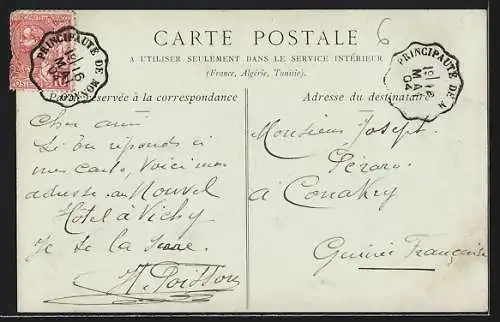 CARTE POSTALE
A UTILISER SEULEMENT DANS LE SERVICE INTÉRIEUR
(France, Algérie, Tunisie).
réservée à la correspondance
Adresse du destinataire
PRINCIPAUTÉ DE MONACO
16
PRINCIPAUTÉ DE M
16
MAI
04
6
Cher ami
Si on réponds à
mes carte, voici mon
adresse au Nouvel
Hotel à Vichy
Je te la serre
H. Poisson
Monsieur Joseph
à Conakry
Guinée Française